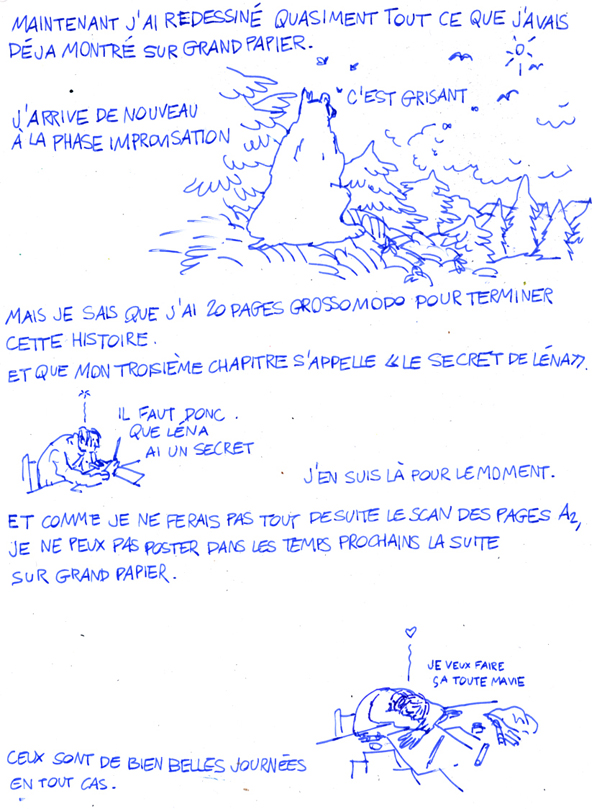 MAINTENANT J'AI REDESSINÉ QUASIMENT TOUT CE QUE J'AVAIS
DÉJA MONTRÉ SUR GRAND PAPIER.
J'ARRIVE DE NOUVEAU
À LA PHASE IMPROVISATION
C'EST GRISANT
MAIS JE SAIS QUE J'AI 20 PAGES GROSSOMODO POUR TERMINER
CETTE HISTOIRE.
ET QUE MON TROISIÈME CHAPITRE S'APPELLE «LE SECRET DE LÉNA».
IL FAUT DONC
QUE LÉNA
AI UN SECRET
J'EN SUIS LÀ POUR LE MOMENT.
ET COMME JE NE FERAIS PAS TOUT DESUITE LE SCAN DES PAGES A2,
JE NE PEUX PAS POSTER DANS LES TEMPS PROCHAINS LA SUITE
SUR GRAND PAPIER.
JE VEUX FAIRE
ÇA TOUTE MA VIE
CEUX SONT DE BIEN BELLES JOURNÉES
EN TOUT CAS.